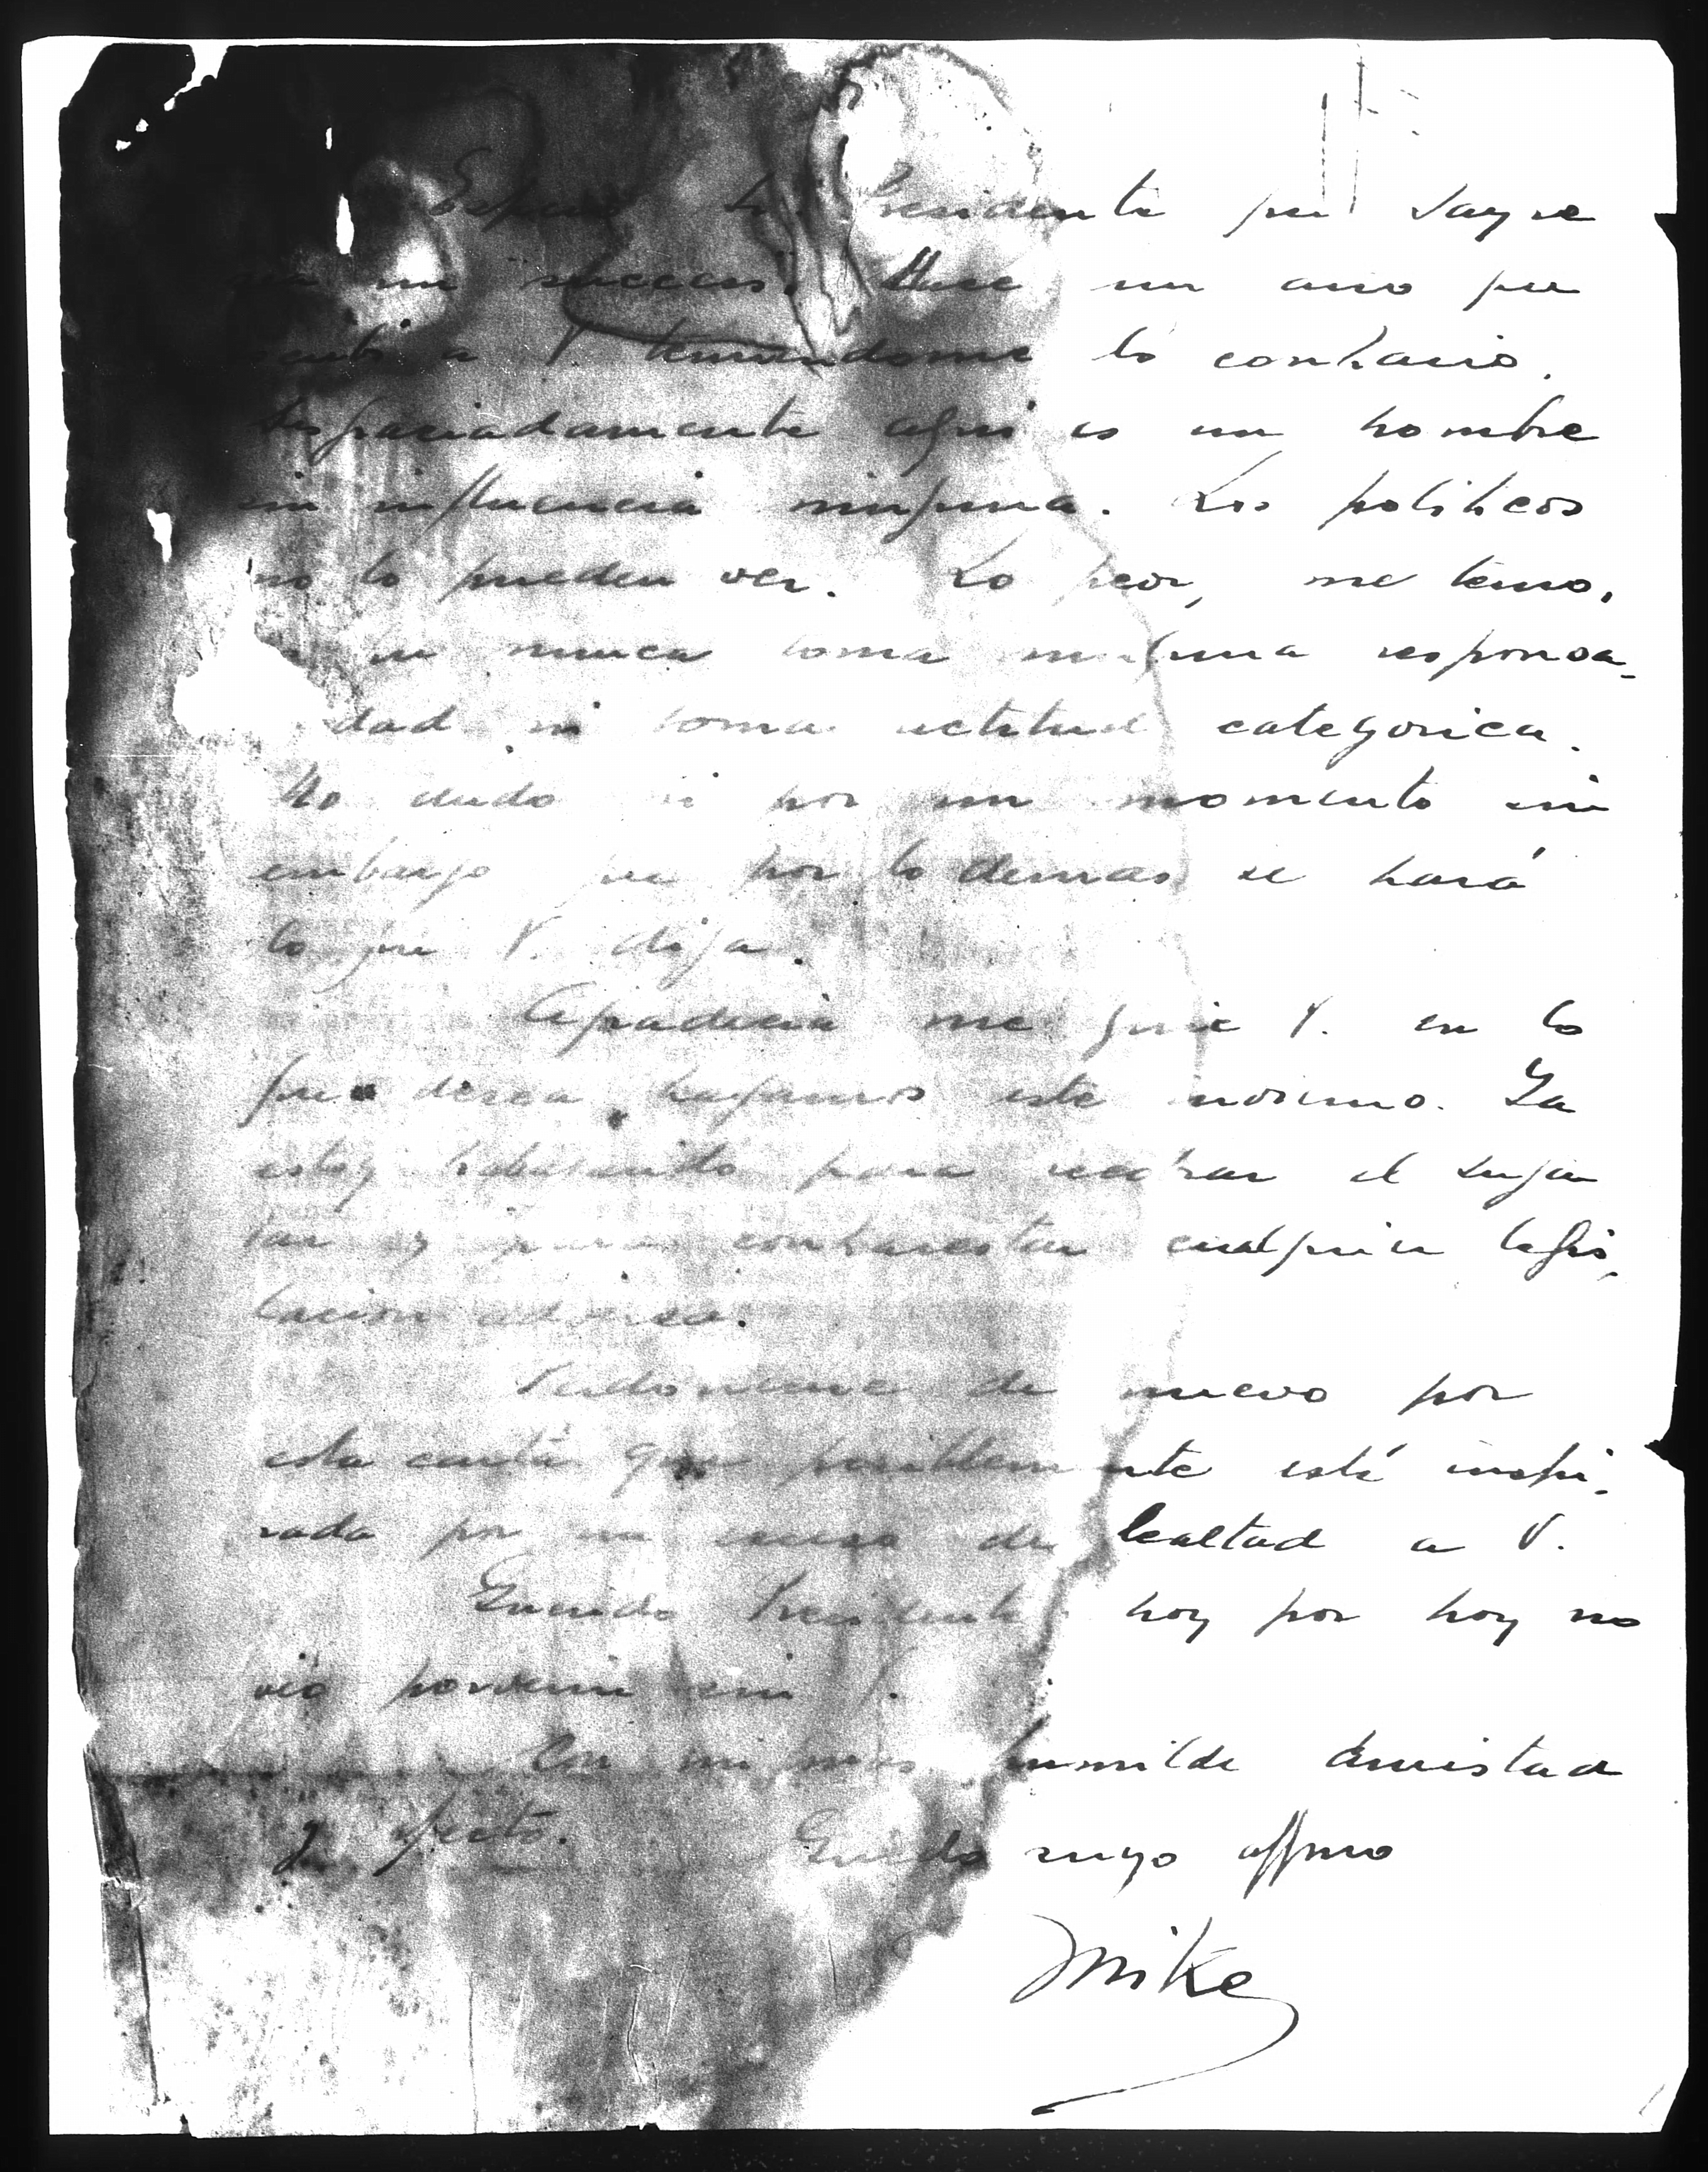 Espero Sr. Presidente que Sayre
sea un "success". Hace un año que
escribi a V. temiendome lo contrario.
Desgraciadamente aqui es un hombre
sin influencia ninguna. Los politicos
no lo pueden ver. Lo peor, me temo,
que nunca toma ninguna responsa-
dad ni toma actitud categorica.
No dudo ni por un momento sin
embargo que por lo demas se hará
lo que V. diga.
Agradeceria me guie V. en lo
que desea hagamos este proximo. Ya
estoy trabajando para el Sugar
Tax y para contrarestar cualquier legis-
lacion adversa.
Perdoneme de nuevo por
esta carta que posiblemente está inspi-
rada por un exceso de lealtad a V.
Querido Presidente hoy por hoy no
veo porvenir sin V.
Con mi mas humilde amistad
y afecto. Quedo suyo affmo
Mike